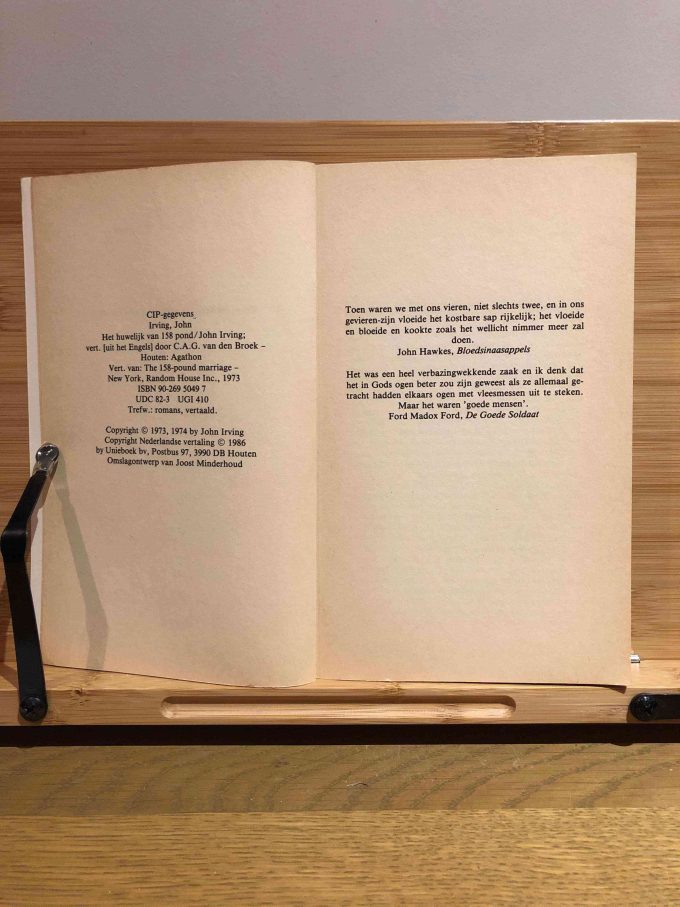 CIP-gegevens
Irving, John
Het huwelijk van 158 pond/John Irving;
vert. [uit het Engels] door C.A.G. van den Broek –
Houten: Agathon
Vert. van: The 158-pound marriage –
New York, Random House Inc., 1973
ISBN 90-269 5049 7
UDC 82-3 UGI 410
Trefw.: romans, vertaald.
Copyright © 1973, 1974 by John Irving
Copyright Nederlandse vertaling © 1986
by Unieboek bv, Postbus 97, 3990 DB Houten
Omslagontwerp van Joost Minderhoud
Toen waren we met ons vieren, niet slechts twee, en in ons
gevieren-zijn vloeide het kostbare sap rijkelijk; het vloeide
en bloeide en kookte zoals het wellicht nimmer meer zal
doen.
John Hawkes, Bloedsinaasappels
Het was een heel verbazingwekkende zaak en ik denk dat
het in Gods ogen beter zou zijn geweest als ze allemaal ge-
tracht hadden elkaars ogen met vleesmessen uit te steken.
Maar het waren 'goede mensen'.
Ford Madox Ford, De Goede Soldaat